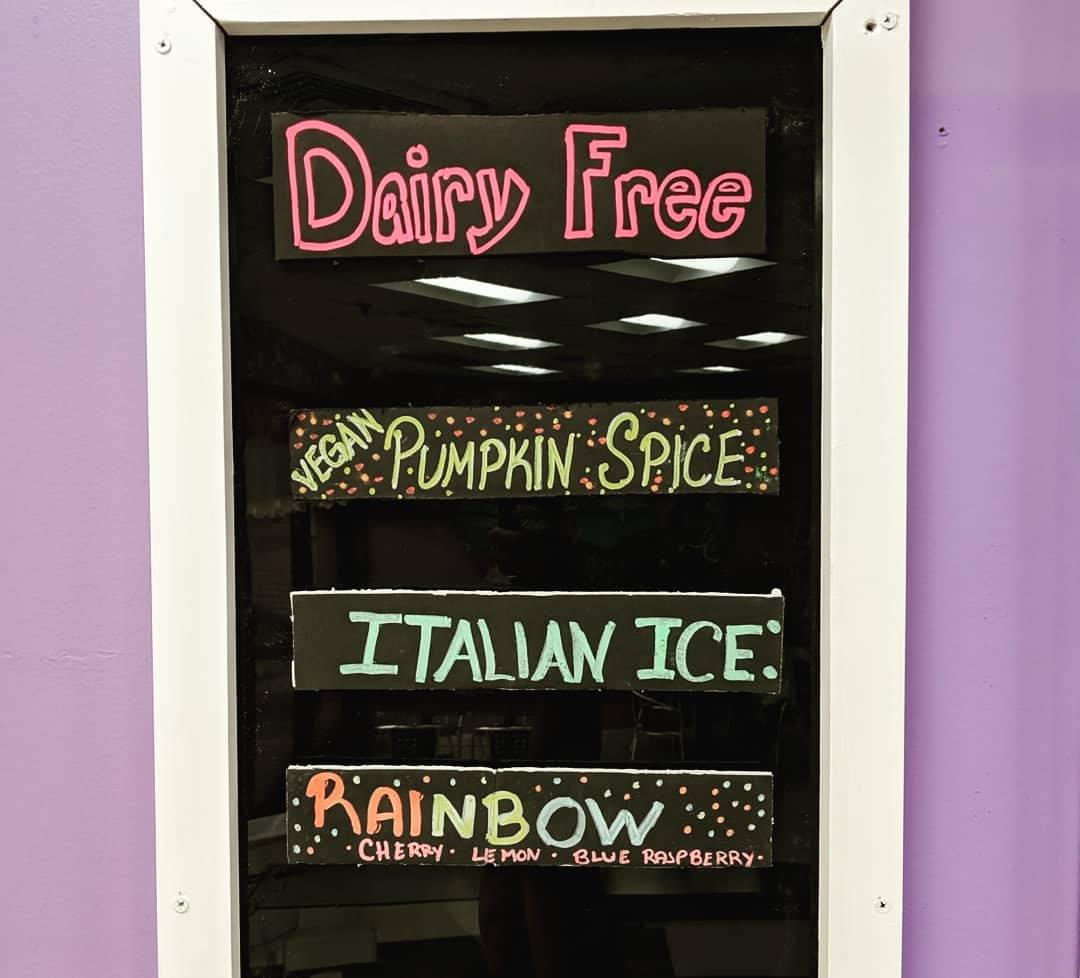 Dairy Free
VEGAN PUMPKIN SPICE
ITALIAN ICE:
RAINBOW
· CHERRY · LEMON · BLUE RASPBERRY ·